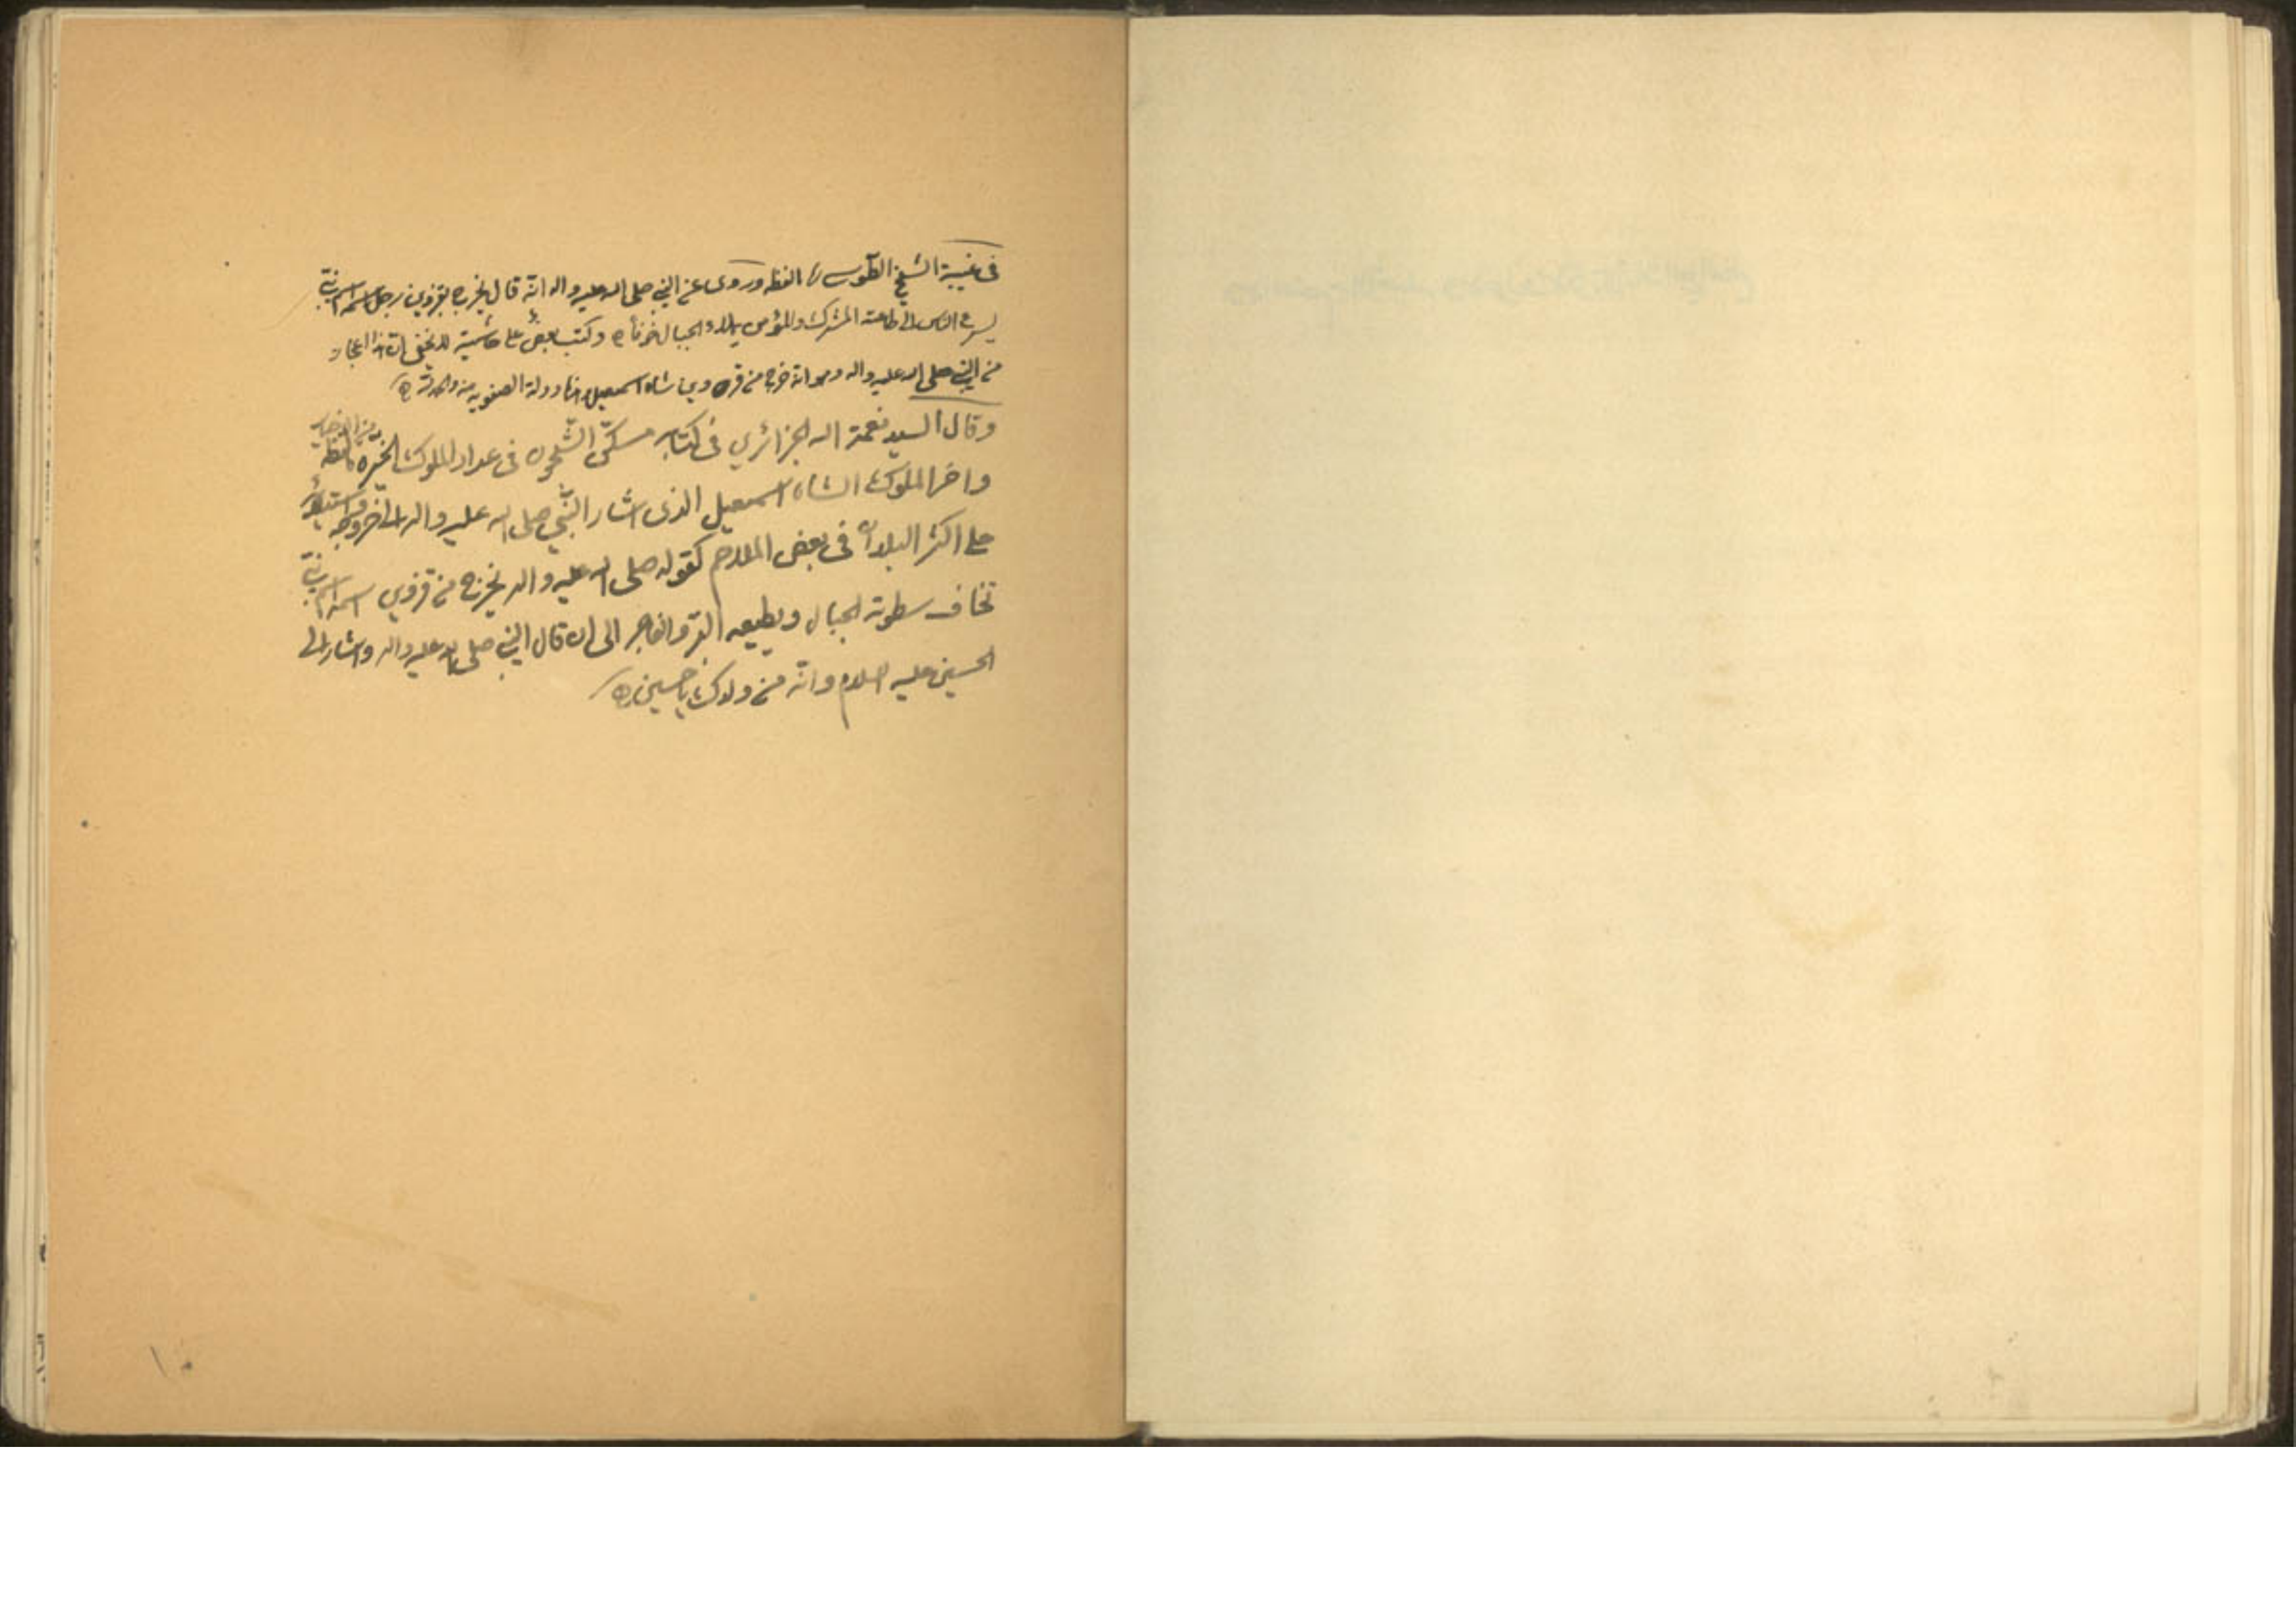 في غيبة الشيخ الطوسي ما لفظه وروى عن النبي صلى الله عليه واله انه قال يخرج بقزوين رجل اسمه اسم نبي
يسرع الناس الى طاعته المشرك والمؤمن يملاء الجبال خوفا ه وكتب بعض على حاشيته لا يخفى ان هذا اعجاز
من النبي صلى الله عليه واله وهو انه خرج من قزوين شاه اسمعيل دولة الصفويه
وقال السيد نعمة الله الجزائري في كتابه مسكن الشجون في عداد الملوك الخيره من الاخيار ما لفظه
واخر الملوك الشاه اسمعيل الذى اشار النبي صلى الله عليه واله الى خروجه واستيلائه
على اكثر البلدان في بعض الملاحم كقوله صلى الله عليه واله يخرج من قزوين اسمه اسم نبي
تخاف سطوته الجبال ويطيعه البر والفاجر الى ان قال النبي صلى الله عليه واله واشار الى
الحسين عليه السلام وانه من ولدك يا حسين ه